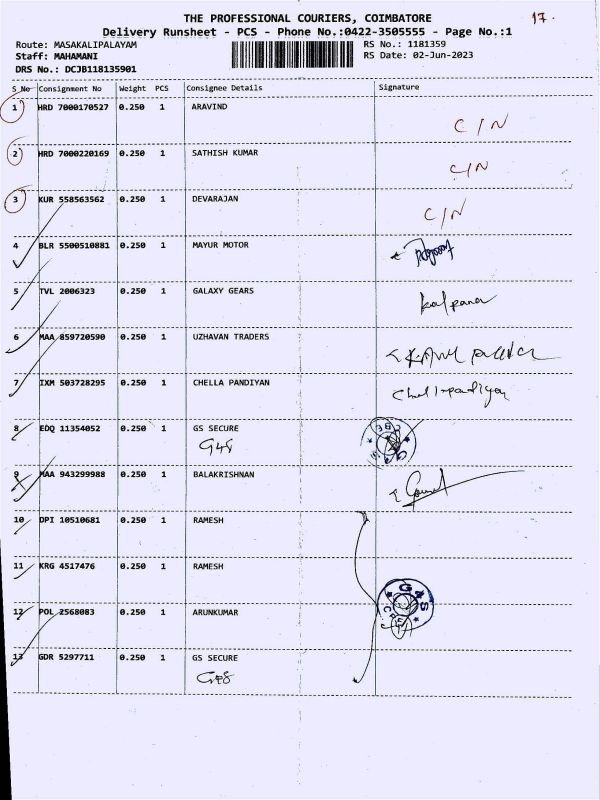 THE PROFESSIONAL COURIERS, COIMBATORE
17.
Delivery Runsheet - PCS - Phone No.:0422-3505555 - Page No.:1
Route: MASAKALIPALAYAM RS No.: 1181359
Staff: MAHAMANI RS Date: 02-Jun-2023
DRS No.: DCJB118135901
S No Consignment No Weight PCS Consignee Details Signature
1 HRD 7000170527 0.250 1 ARAVIND C/N
2 HRD 7000220169 0.250 1 SATHISH KUMAR C/N
3 KUR 558563562 0.250 1 DEVARAJAN C/N
4 BLR 5500510881 0.250 1 MAYUR MOTOR
5 TVL 2006323 0.250 1 GALAXY GEARS Kalpana
6 MAA 859720590 0.250 1 UZHAVAN TRADERS
7 IXM 503728295 0.250 1 CHELLA PANDIYAN
8 EDQ 11354052 0.250 1 GS SECURE
G4S
9 MAA 943299988 0.250 1 BALAKRISHNAN
10 DPI 10510681 0.250 1 RAMESH
11 KRG 4517476 0.250 1 RAMESH
12 POL 2568083 0.250 1 ARUNKUMAR
13 GDR 5297711 0.250 1 GS SECURE